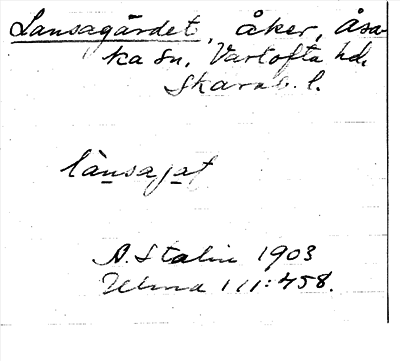 Lansagärdet, åker, Åsa-
ka sn, Vartofta hd,
Skarab. l.
lànsajat
A. Stalin 1903
Ulma 111:458.